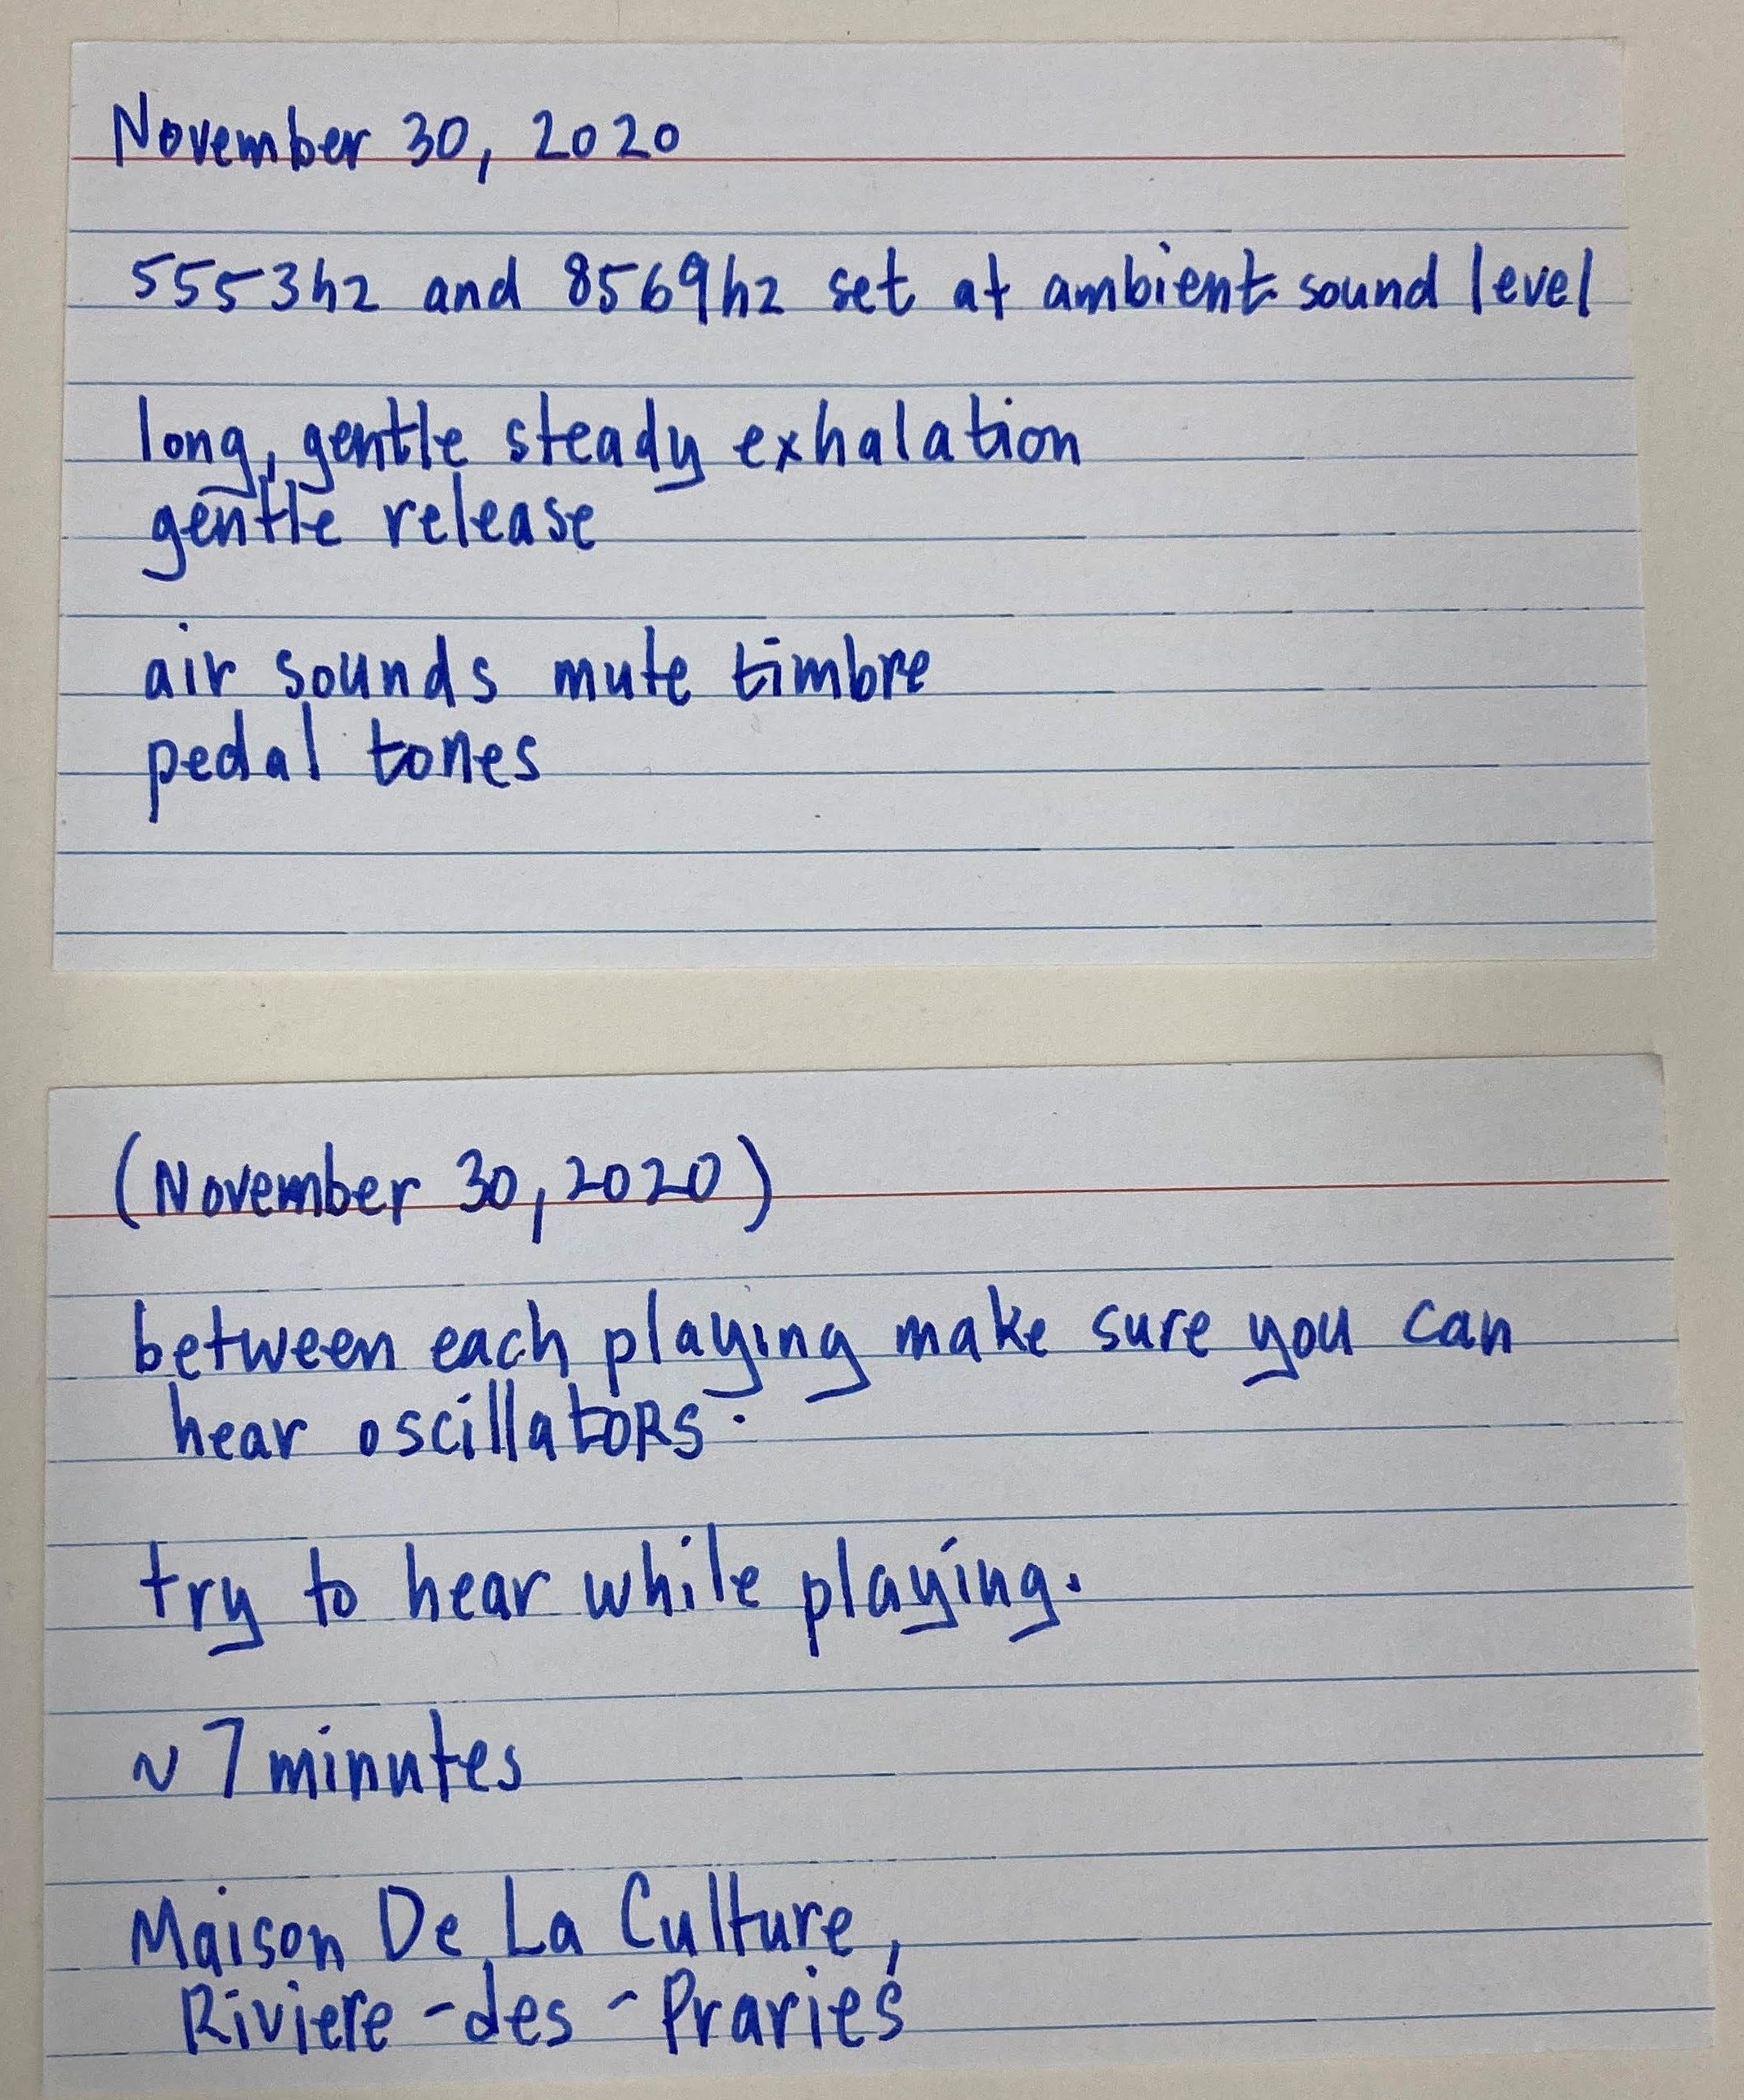 November 30, 2020
5553hz and 8569hz set at ambient sound level
long, gentle steady exhalation
gentle release
air sounds mute timbre
pedal tones
(November 30, 2020)
between each playing make sure you can
hear oscillatoRs.
try to hear while playing.
~ 7 minutes
Maison De La Culture,
Riviere-des-Praries